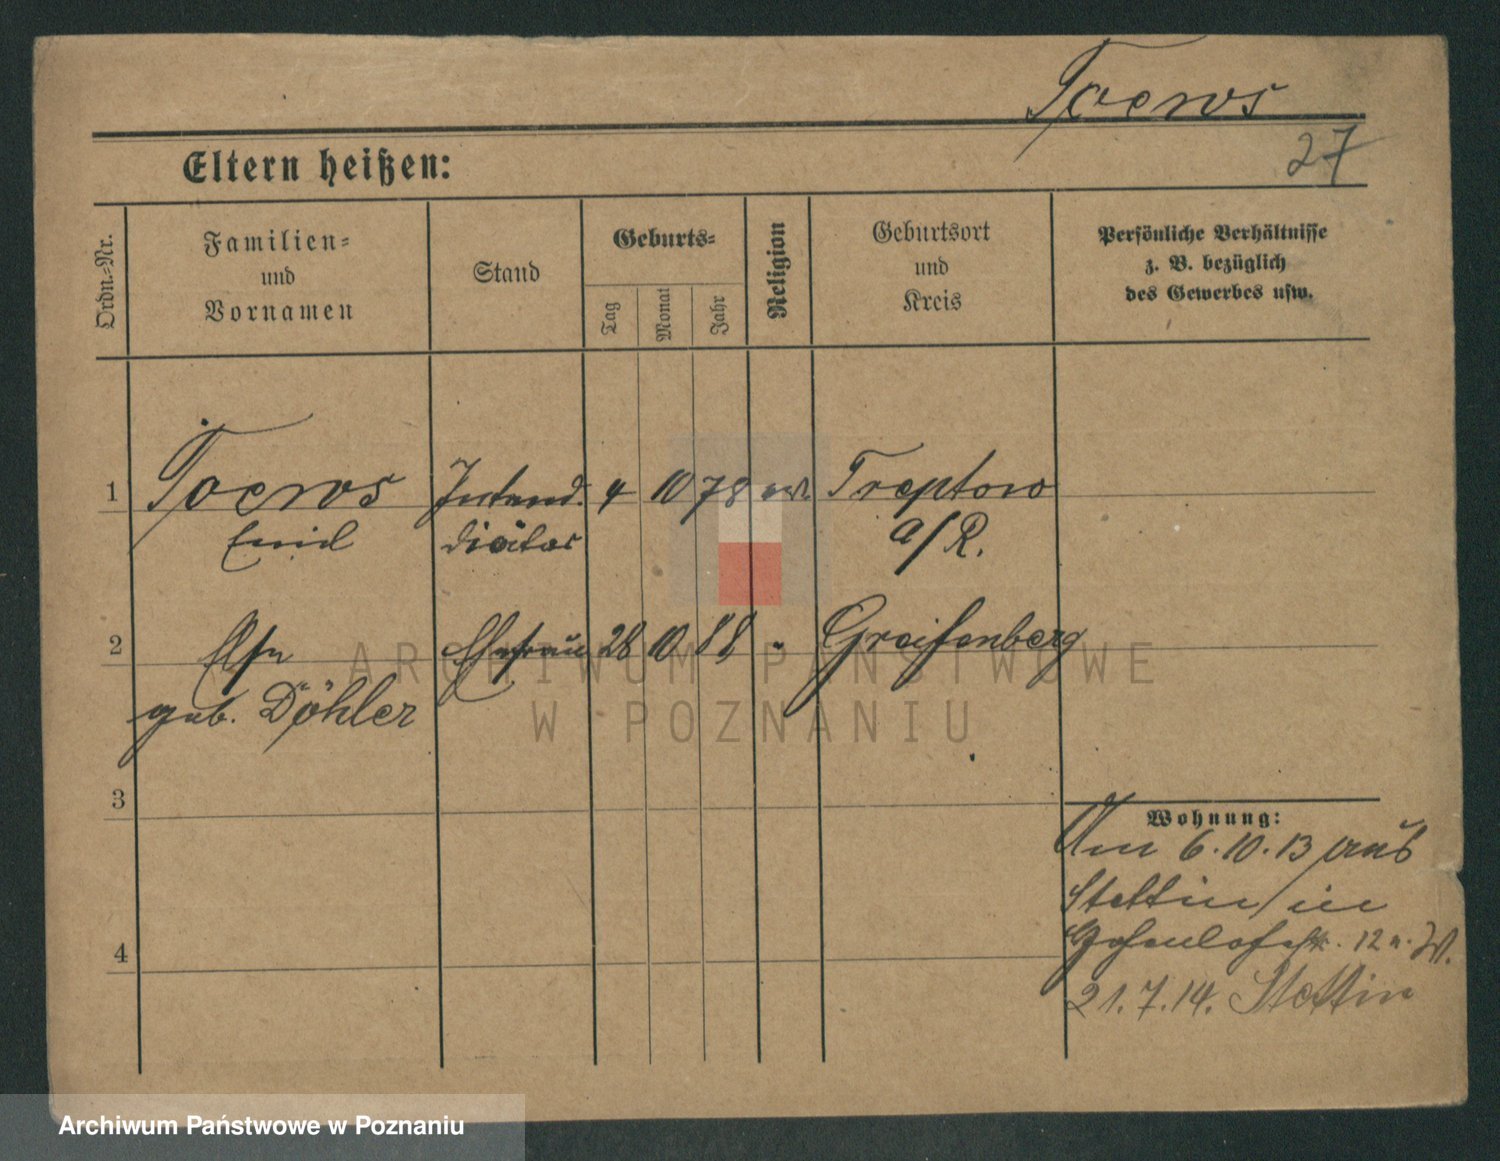 Toews
27
Eltern heißen:
Ordn.-Nr.
Familien-
und
Vornamen
Stand
Geburts-
Tag
Monat
Jahr
Religion
Geburtsort
und
Kreis
Persönliche Verhältnisse
z. B. bezüglich
des Gewerbes usw.
1 Toews Intend. 4 10 78 ev. Treptow
Emil diätar a/R.
2 Else Ehefrau 28 10 88 " Greifenberg
geb. Döhler
3
4
Wohnung:
Am 6.10.13 aus
Stettin in
Hohenlohestr. 12 W.
21.7.14. Stettin
ARCHIWUM PAŃSTWOWE
W POZNANIU
Archiwum Państwowe w Poznaniu